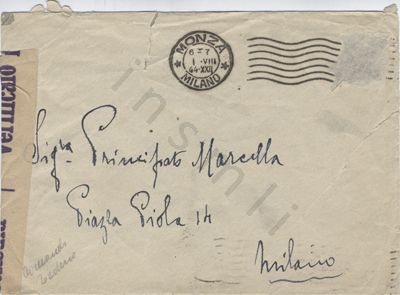 MONZA
6-7
1 VIII
44·XXII
MILANO
Verificato
Sig.ra Principato Marcella
Piazza Piola 14
Milano
insunki